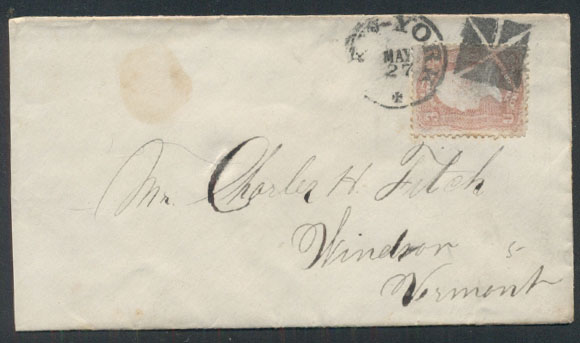 NEW-YORK
MAY
27
3 3
Mr. Charles H. Fitch
Windsor
Vermont